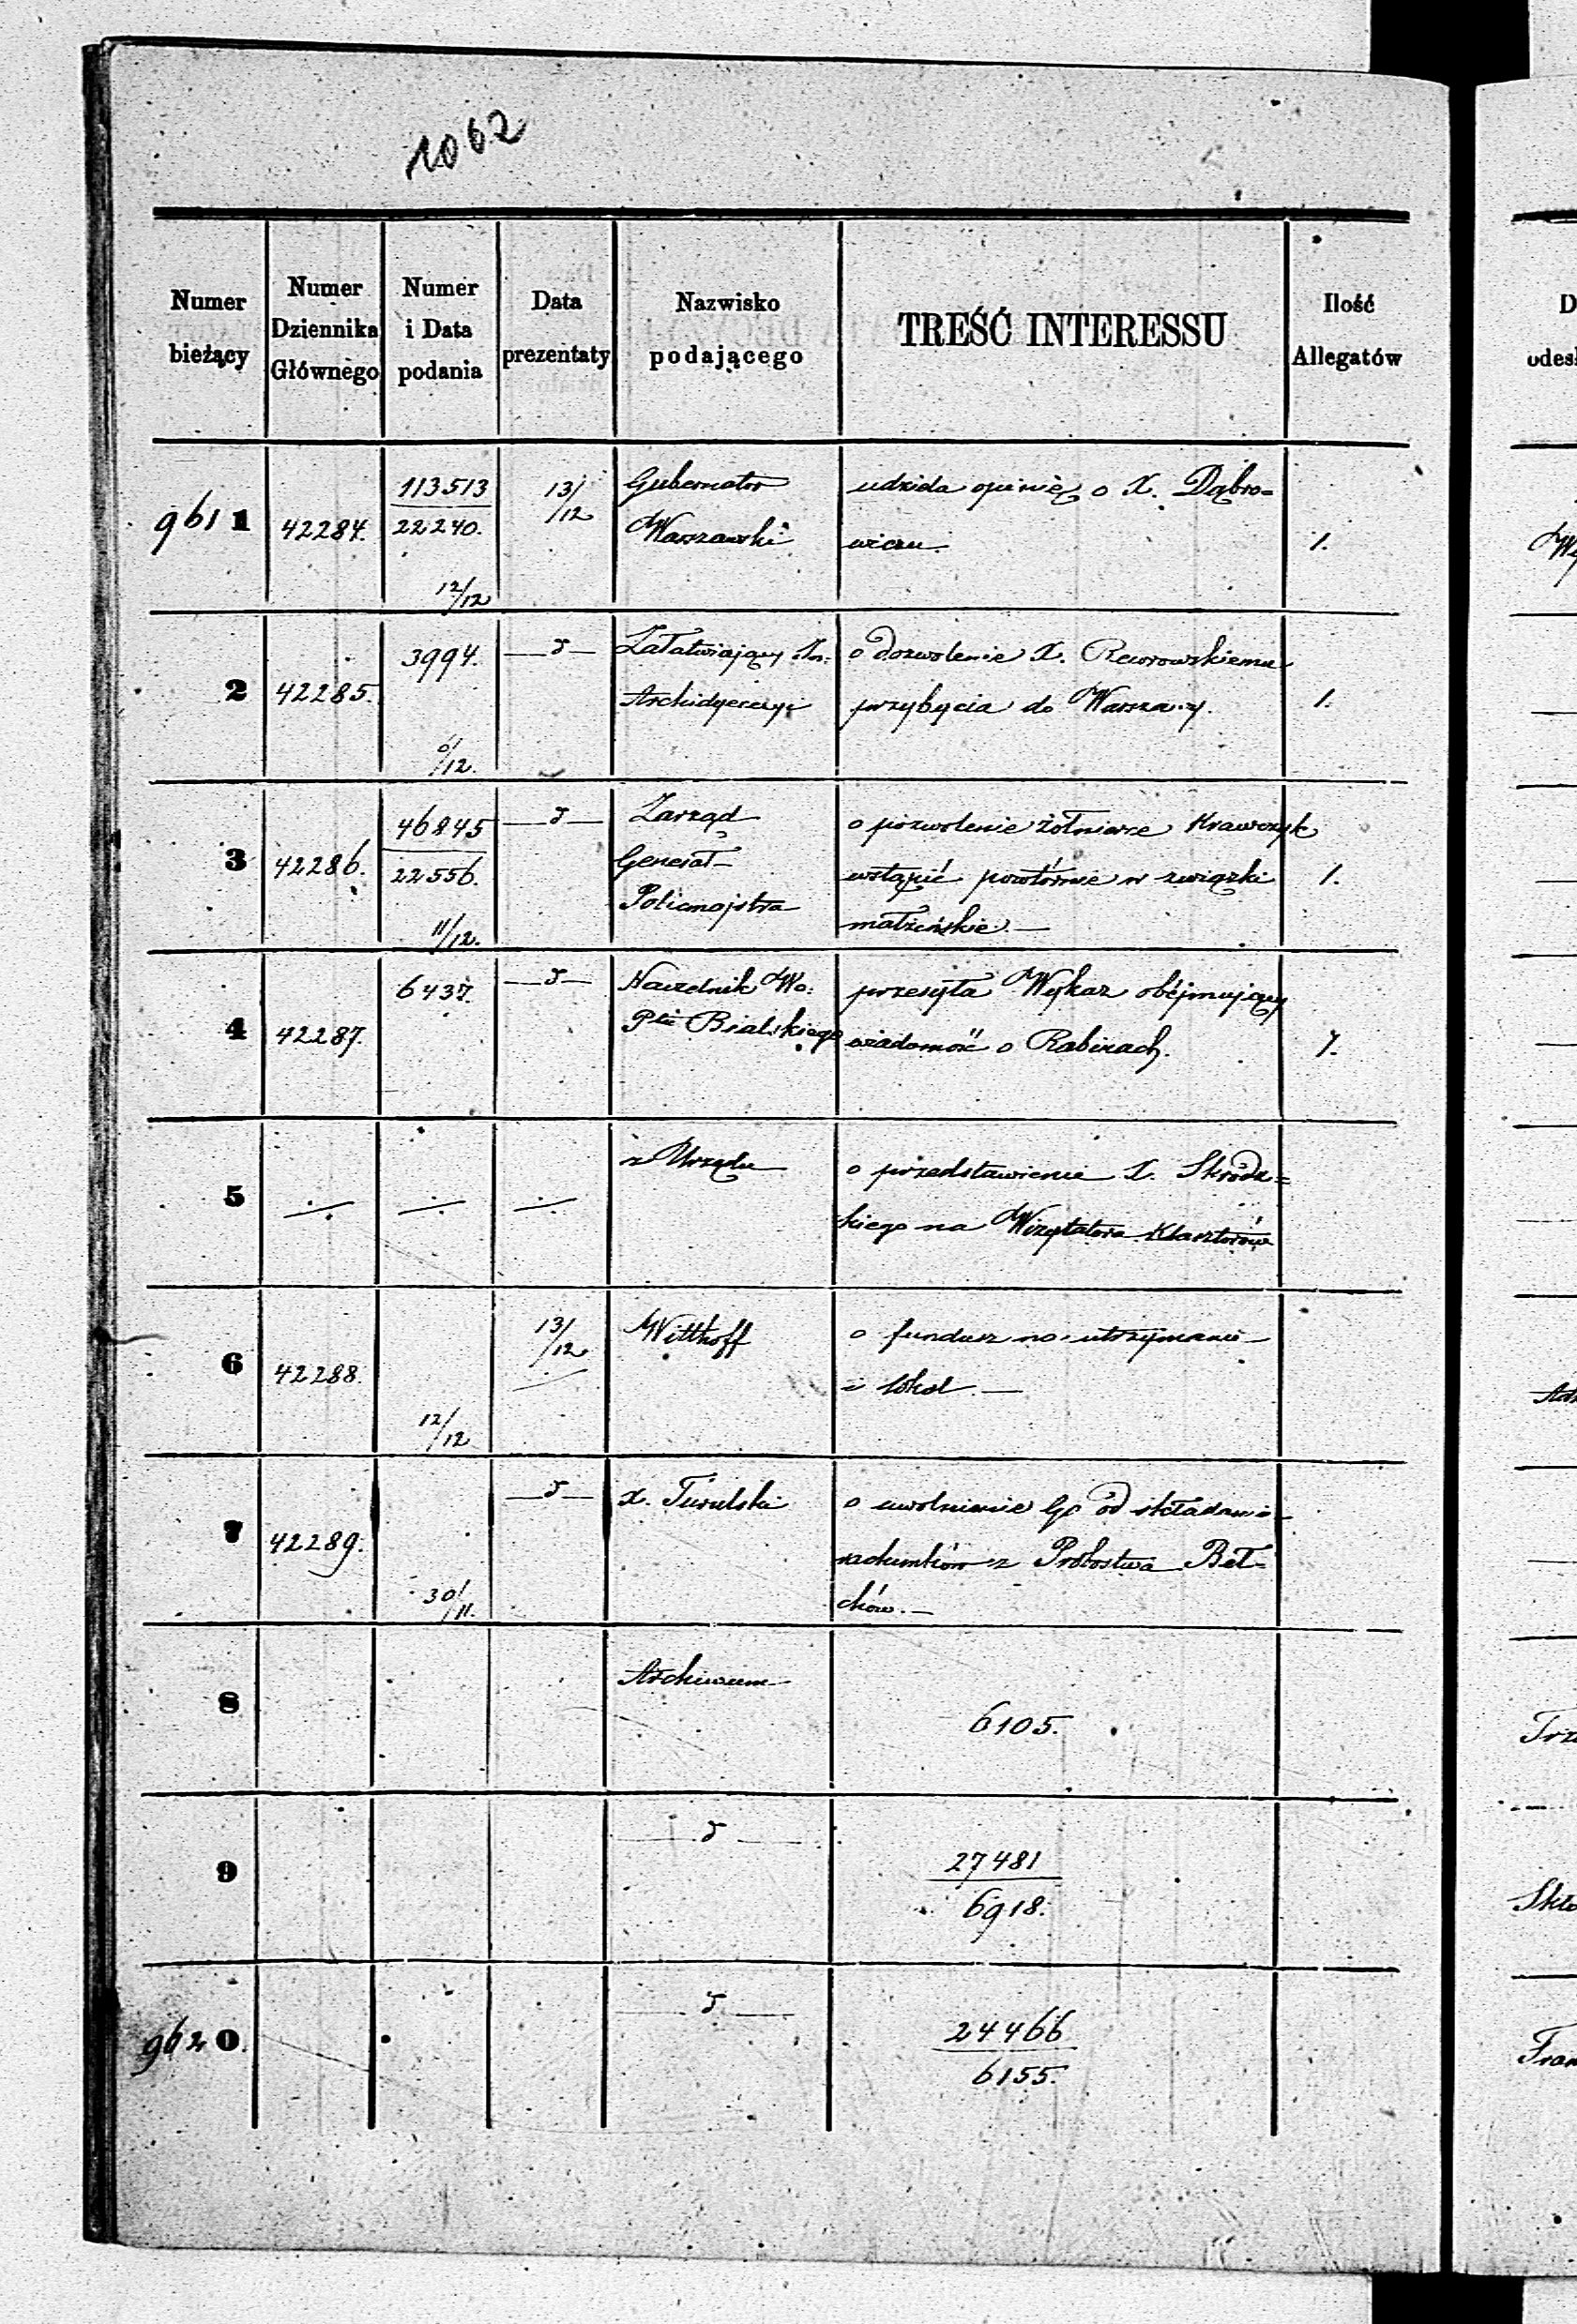 1062
Numer bieżący
Numer Dziennika Głównego
Numer i Data podania
Data prezentaty
Nazwisko podającego
TREŚĆ INTERESSU
Ilość Allegatów
9611 42284. 113513 13/12 Gubernator udziela opinię o X. Dąbro=
22240. Warszawski wiczu. 1.
12/12
2 42285. 3994. —d— Załatwiający In. o dozwolenie X. Reworowskiemu
Archidyecezyi przybycia do Warszawy. 1.
6/12.
3 42286. 46845 —d— Zarząd o pozwolenie żołnierce Krawczyk
22556. Generał- wstąpić powtórnie w związki 1.
11/12. Policmajstra małżeńskie.—
4 42287. 6437. —d— Naczelnik Wo. przesyła Wykaz obejmujący
Ptu Bialskiego wiadomość o Rabinach. 7.
5 z Urzędu o przedstawienie X. Skrodz=
kiego na Wizytatora Klasztorów
6 42288. 13/12 Witthoff o fundusz na utrzymanie
12/12 i lokal.—
7 42289. —d— X. Turulski o uwolnienie Go od składania
rachunków z Probostwa Beł=
30/11. chów.—
8 Archiwum
6105.
9 —d—
27481
6918.
9620. —d—
24466
6155.